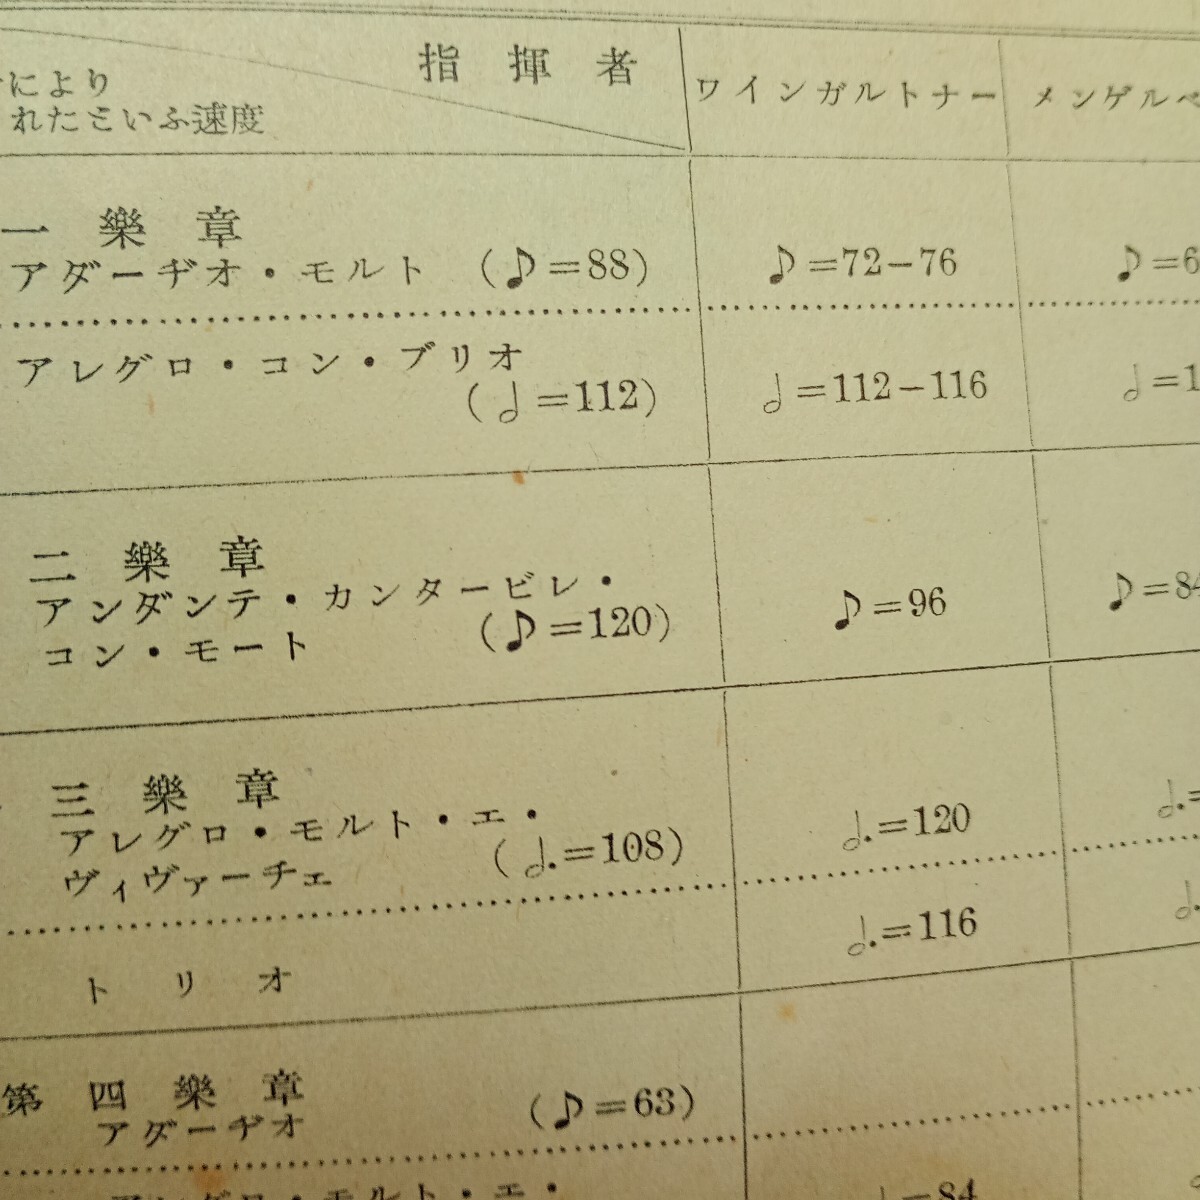 指揮者
により
れたといふ速度
ワインガルトナー
メンゲルベ
一樂章
アダーヂオ・モルト (♪=88)
♪=72-76
♪=6
アレグロ・コン・ブリオ
(𝅗𝅥=112)
𝅗𝅥=112-116
𝅗𝅥=1
二樂章
アンダンテ・カンタービレ・
コン・モート (♪=120)
♪=96
♪=84
三樂章
アレグロ・モルト・エ・
ヴィヴァーチェ (𝅗𝅥.=108)
𝅗𝅥.=120
𝅗𝅥.=
トリオ
𝅗𝅥.=116
𝅗𝅥.
第四樂章
アダーヂオ (♪=63)
アレグロ・モルト・エ・
=84